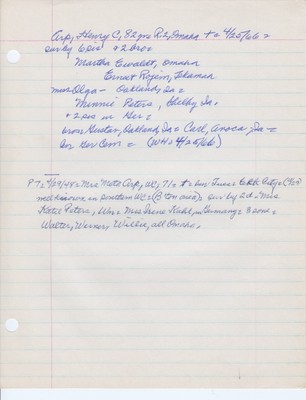 Arp, Henry C, 82 yrs R.2, Omaha + = 4/25/66 =
sur by 6 sis + 2 bro =
Martha Ewaldt, Omaha
Ernest Rojem, Tekamah
Mrs Olga - Oakland, Ia =
Minnie Peters, Shelby Ia.
+ 2 sis in Ger =
bros Gustav, Oakland, Ia = Carl, Avoca, Ia =
in Ger Cem = (WH = 4/25/66)
P T = 4/29/48 = Mrs Meta Arp, WC, 71 = + =
well known in southern WC = sur by 2 d = Mrs
Katie Peters, Wn = Mrs Irene Kahl, in Germany = 3 sons =
Walter, Werner, Willie, all Omaha.